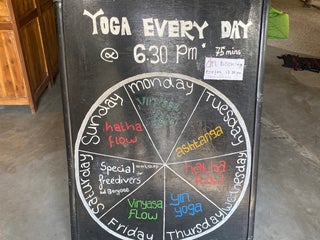 YOGA EVERY DAY
@ 6:30 PM*
75 mins
Monday
Vinyasa
FLOW
Tuesday
ashtanga
Wednesday
hatha
Thursday
yin
yoga
Friday
Vinyasa
FLOW
Saturday
Special
freedivers
Sunday
hatha
flow